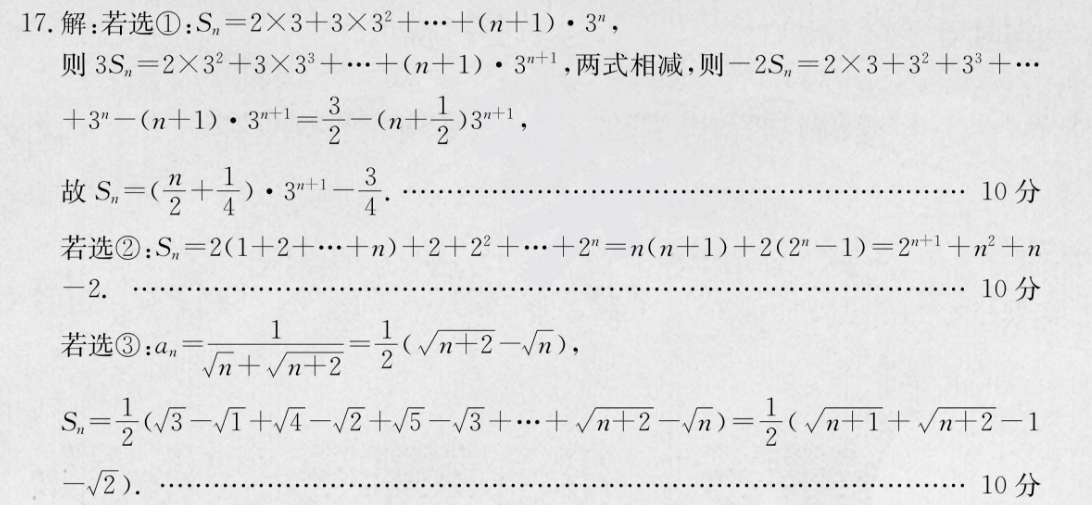 17. 解:若选①:Sₙ=2×3+3×3²+…+(n+1)·3ⁿ,
则 3Sₙ=2×3²+3×3³+…+(n+1)·3ⁿ⁺¹,两式相减,则-2Sₙ=2×3+3²+3³+…
+3ⁿ-(n+1)·3ⁿ⁺¹=\frac{3}{2}-(n+\frac{1}{2})3ⁿ⁺¹,
故 Sₙ=(\frac{n}{2}+\frac{1}{4})·3ⁿ⁺¹-\frac{3}{4}. ………………………………………………… 10 分
若选②:Sₙ=2(1+2+…+n)+2+2²+…+2ⁿ=n(n+1)+2(2ⁿ-1)=2ⁿ⁺¹+n²+n
-2. ………………………………………………………………………… 10 分
若选③:aₙ=\frac{1}{\sqrt{n}+\sqrt{n+2}}=\frac{1}{2}(\sqrt{n+2}-\sqrt{n}),
Sₙ=\frac{1}{2}(\sqrt{3}-\sqrt{1}+\sqrt{4}-\sqrt{2}+\sqrt{5}-\sqrt{3}+…+\sqrt{n+2}-\sqrt{n})=\frac{1}{2}(\sqrt{n+1}+\sqrt{n+2}-1
-\sqrt{2}). ……………………………………………………………………… 10 分